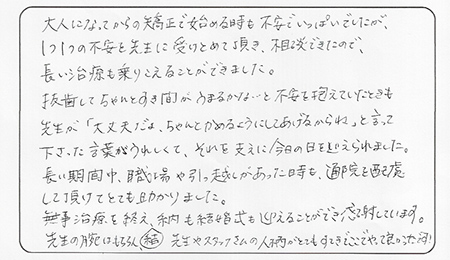 大人になってからの矯正で始める時も不安でいっぱいでしたが、
1つ1つの不安を先生に受けとめて頂き、相談できたので、
長い治療も乗りこえることができました。
抜歯してちゃんとすき間がうまるかな…と不安を抱えていたときも
先生が「大丈夫だよ、ちゃんとかめるようにしてあげるからね」と言って
下さった言葉がうれしくて、それを支えに今日の日を迎えられました。
長い期間中、職場や引っ越しがあった時も、通院を配慮
して頂けてとても助かりました。
無事治療を終え、結婚式も迎えることができ感謝しています。
先生の腕はもちろん、先生やスタッフさんの人柄がとてもすてきでここでやって良かった